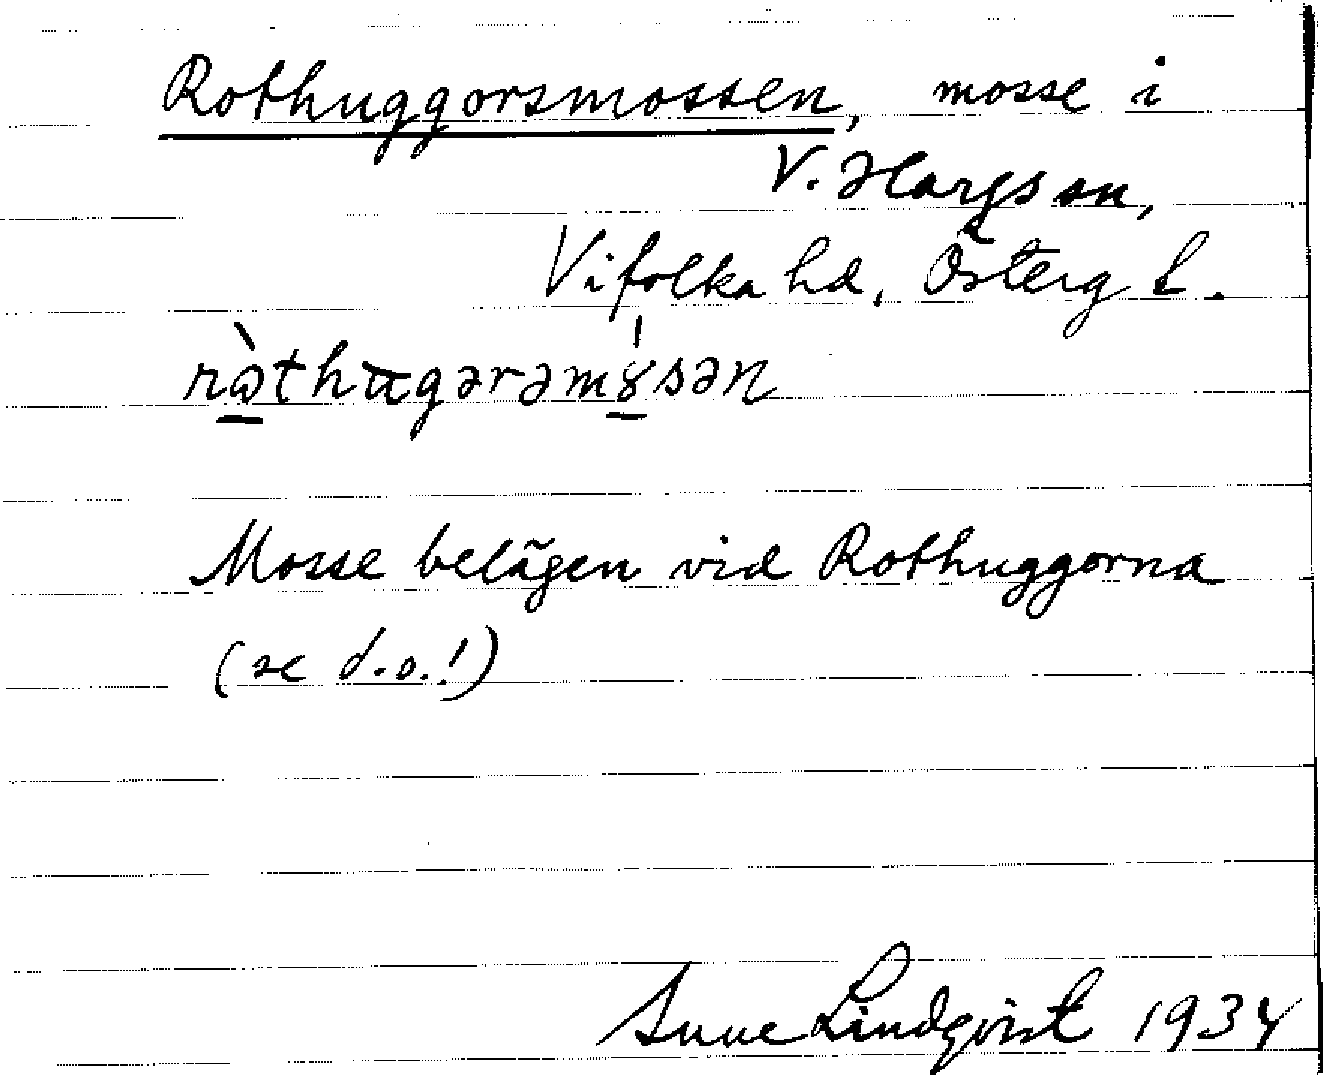 Rothuggorsmossen, mosse i
V. Hargs sn,
Vifolka hd, Österg l.
Mosse belägen vid Rothuggorna
(se d.o.!)
Sune Lindqvist 1934